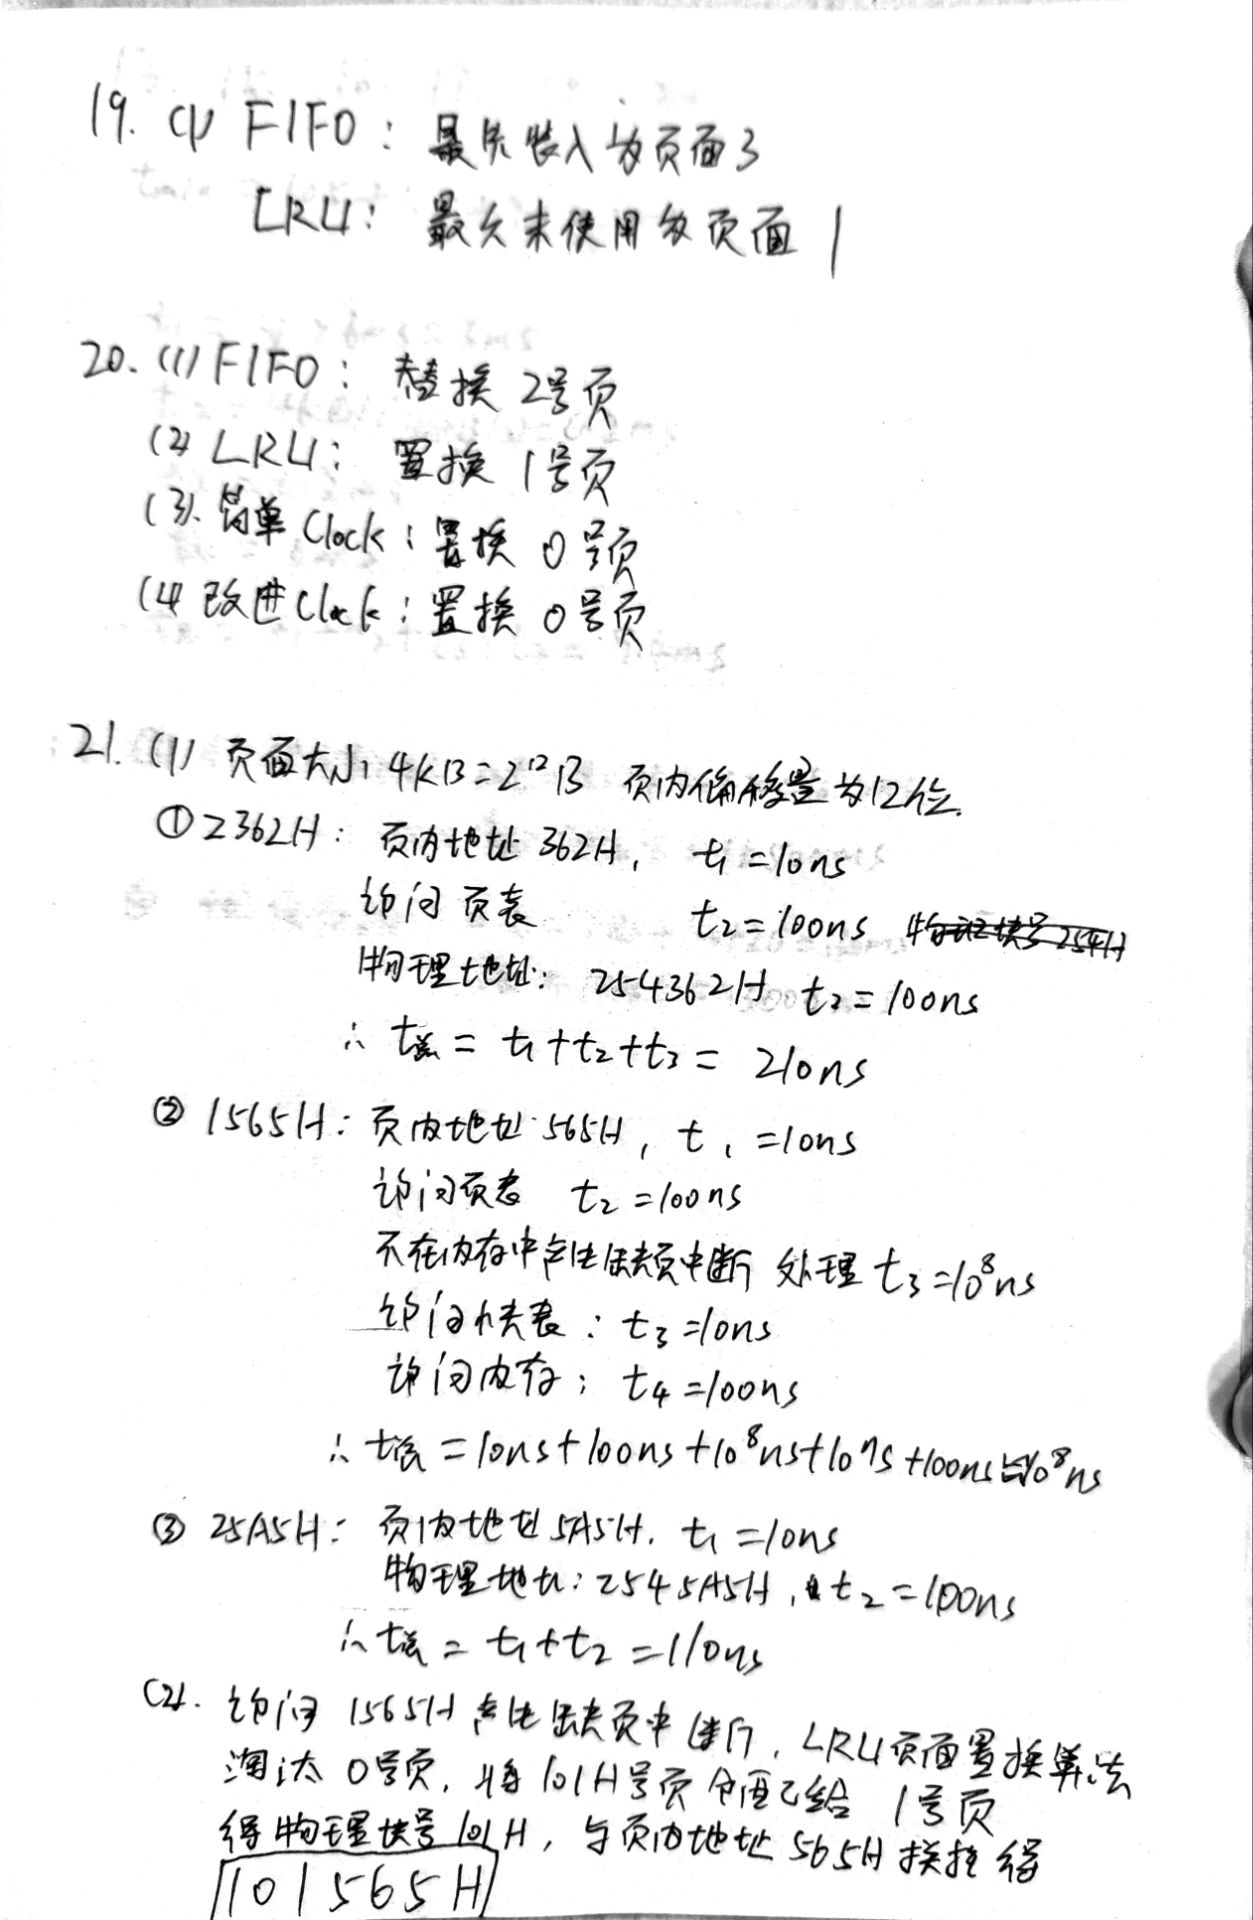 19. (1) FIFO: 最先装入为页面3
LRU: 最久未使用为页面 1
20. (1) FIFO: 替换 2号页
(2) LRU: 置换 1号页
(3). 简单 Clock: 置换 0号页
(4) 改进Clock: 置换 0号页
21. (1) 页面大小 4KB=2¹²B 页内偏移量为12位.
① 2362H: 页内地址 362H, t₁=10ns
访问页表 t₂=100ns 物理块号254H
物理地址: 254362H t₃=100ns
∴ t总 = t₁+t₂+t₃ = 210ns
② 1565H: 页内地址 565H, t₁=10ns
访问页表 t₂=100ns
不在内存中产生缺页中断 处理 t₃=10⁸ns
访问快表: t₃=10ns
访问内存: t₄=100ns
∴ t总 = 10ns+100ns+10⁸ns+10ns+100ns≈10⁸ns
③ 25A5H: 页内地址 5A5H. t₁=10ns
物理地址: 2545A5H, t₂=100ns
∴ t总 = t₁+t₂ =110ns
(2). 访问 1565H 产生缺页中断, LRU页面置换算法
淘汰 0号页, 将 101H号页分配给 1号页
得物理块号 101H, 与页内地址 565H 拼接得
101565H